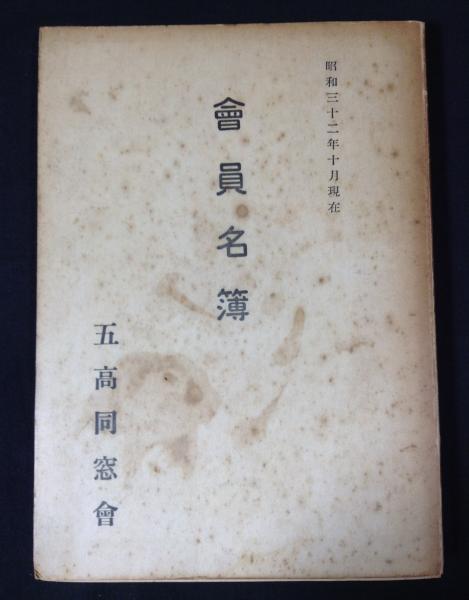 昭和三十二年十月現在
會員名簿
五高同窓會